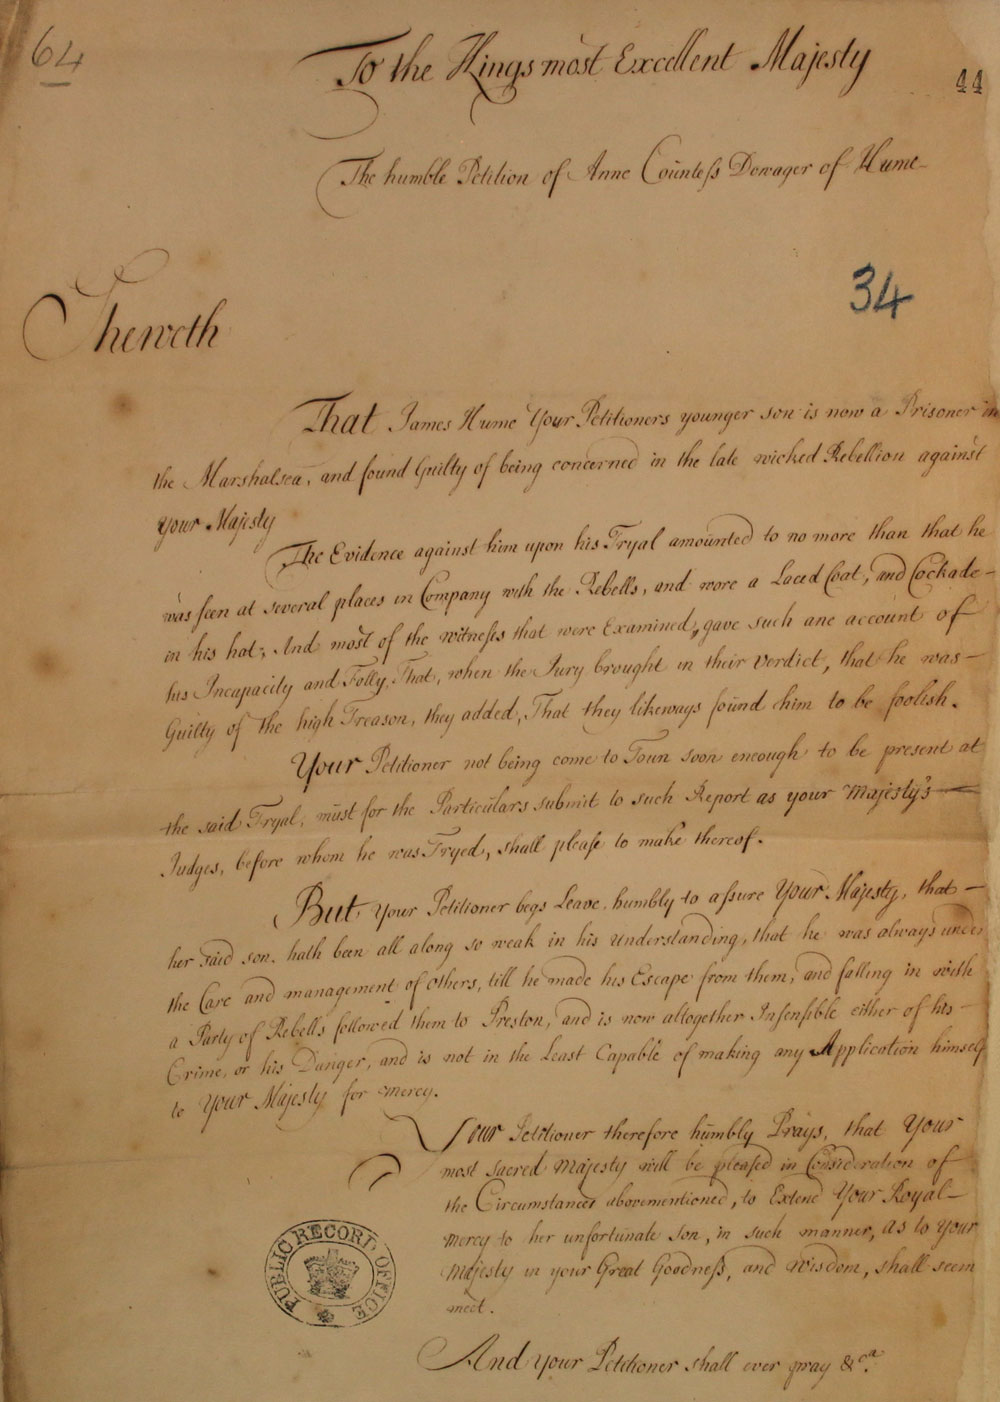 64
To the Kings most Excellent Majesty
44
The humble Petition of Anne Countess Dowager of Hume
34
Sheweth
That James Hume Your Petitioners younger son is now a Prisoner in
the Marshalsea, and found Guilty of being concerned in the late wicked Rebellion against
Your Majesty
The Evidence against him upon his Tryal amounted to no more than that he
was seen at several places in Company with the Rebells, and wore a Laced Coat, and Cockade
in his hat; And most of the witnesses that were Examined, gave such ane account of
his Incapacity and Folly, That, when the Jury brought in their verdict, that he was
Guilty of the high Treason, they added, That they likeways found him to be foolish.
Your Petitioner not being come to Toun soon eneough to be present at
the said Tryal, must for the Particulars submit to such Report as your Majesty's
Judges, before whom he was Tryed, shall please to make thereof.
But, Your Petitioner begs Leave, humbly to assure Your Majesty, that
her said son, hath been all along so weak in his understanding, that he was always under
the Care and management of others, till he made his Escape from them, and falling in with
a Party of Rebells followed them to Preston, and is now altogether Insensible either of his
Crime, or his Danger, and is not in the Least Capable of making any Application himself
to Your Majesty for mercy.
Your Petitioner therefore humbly Prays, that Your
most sacred Majesty will be pleased in Consideration of
the Circumstances abovementioned, to Extend Your Royal
mercy to her unfortunate son, in such manner, as to your
Majesty in your Great Goodness, and wisdom, shall seem
meet.
And your Petitioner shall ever pray &ca.
PUBLIC RECORD OFFICE